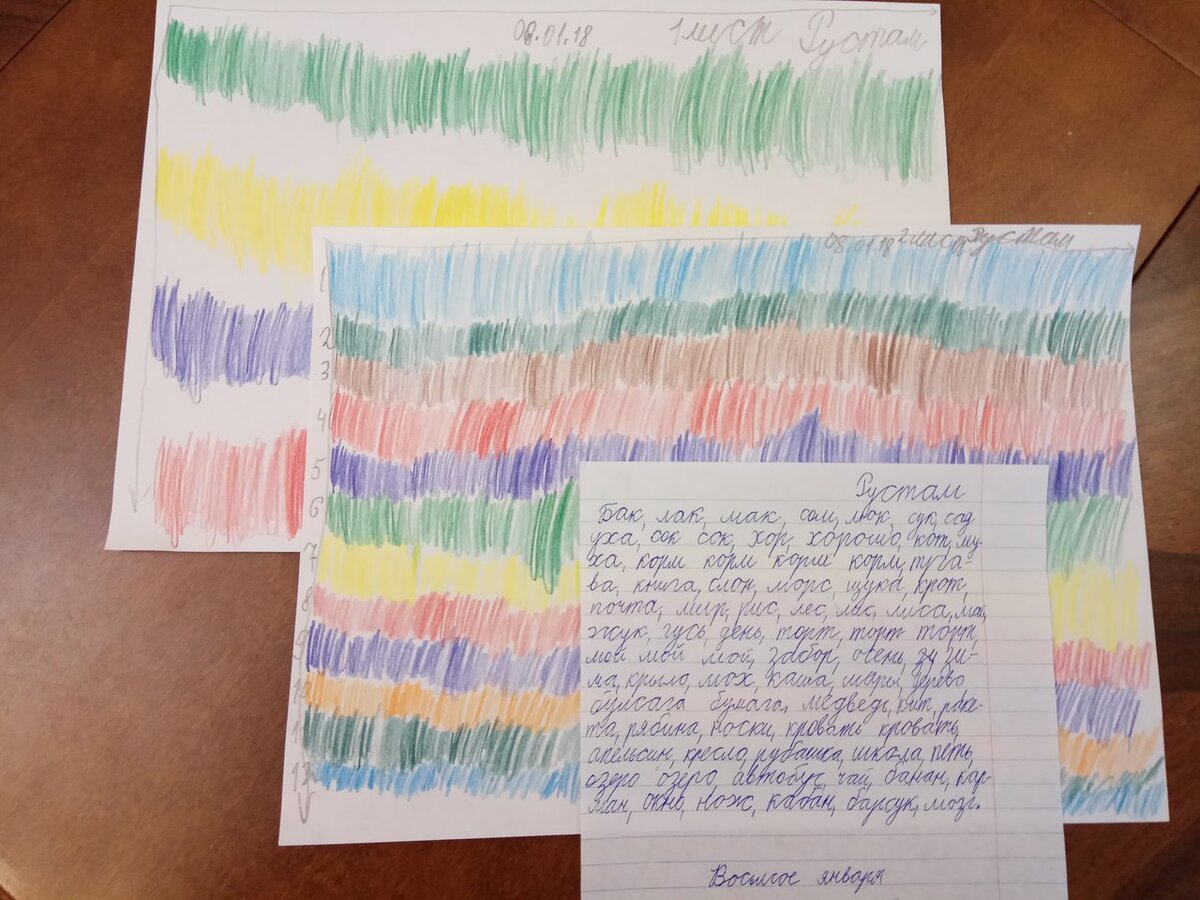 08.01.18 1 лист Рустам
08.01.18 2 лист Рустам
1
2
3
4
5
6
7
8
9
10
1
12
Рустам
Бак, лак, мак, сом, люк, сук, сад
уха, сок сок, хор, хорошо, кот, му-
ха, корм корм корм корм, туча-
ва, книга, слон, морс, щука, крот,
почта, мир, рис, лес, лис, лиса, май,
жук, гусь, день, торт, торт торт,
мой мой мой, забор, очень, зу зи-
ма, крыло, мох, каша, шары, дерево
бумсага бумага, медведь, кит, раке-
та, рябина, носки, кровать кровать,
апельсин, кресло, рубашка, школа, петь,
озеро озеро, автобус, чай, банан, кар-
ман, окно, нож, кабан, барсук, мозг.
Восьмое января